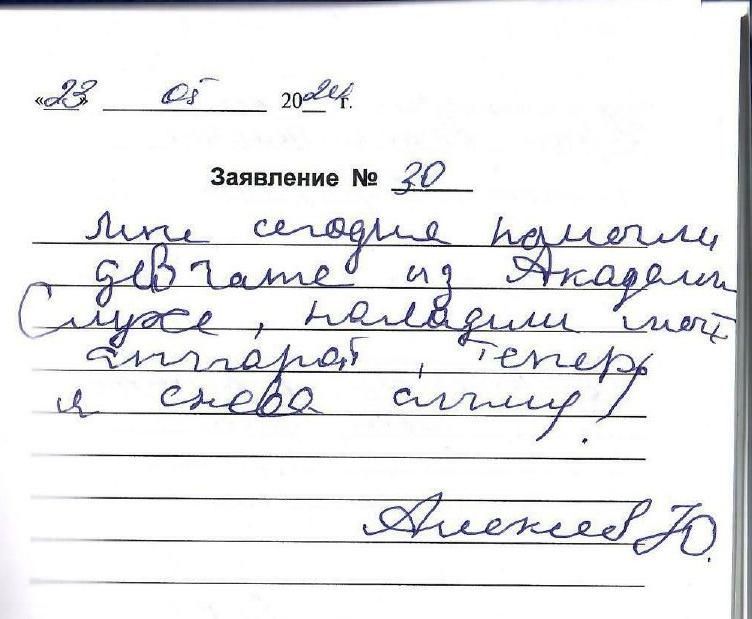 «23» 05 2024 г.
Заявление № 30
Мне сегодня помогли
девчата из Академии
Слуха, наладили мой
аппарат, теперь
я снова слышу!
Алексеев Ю.